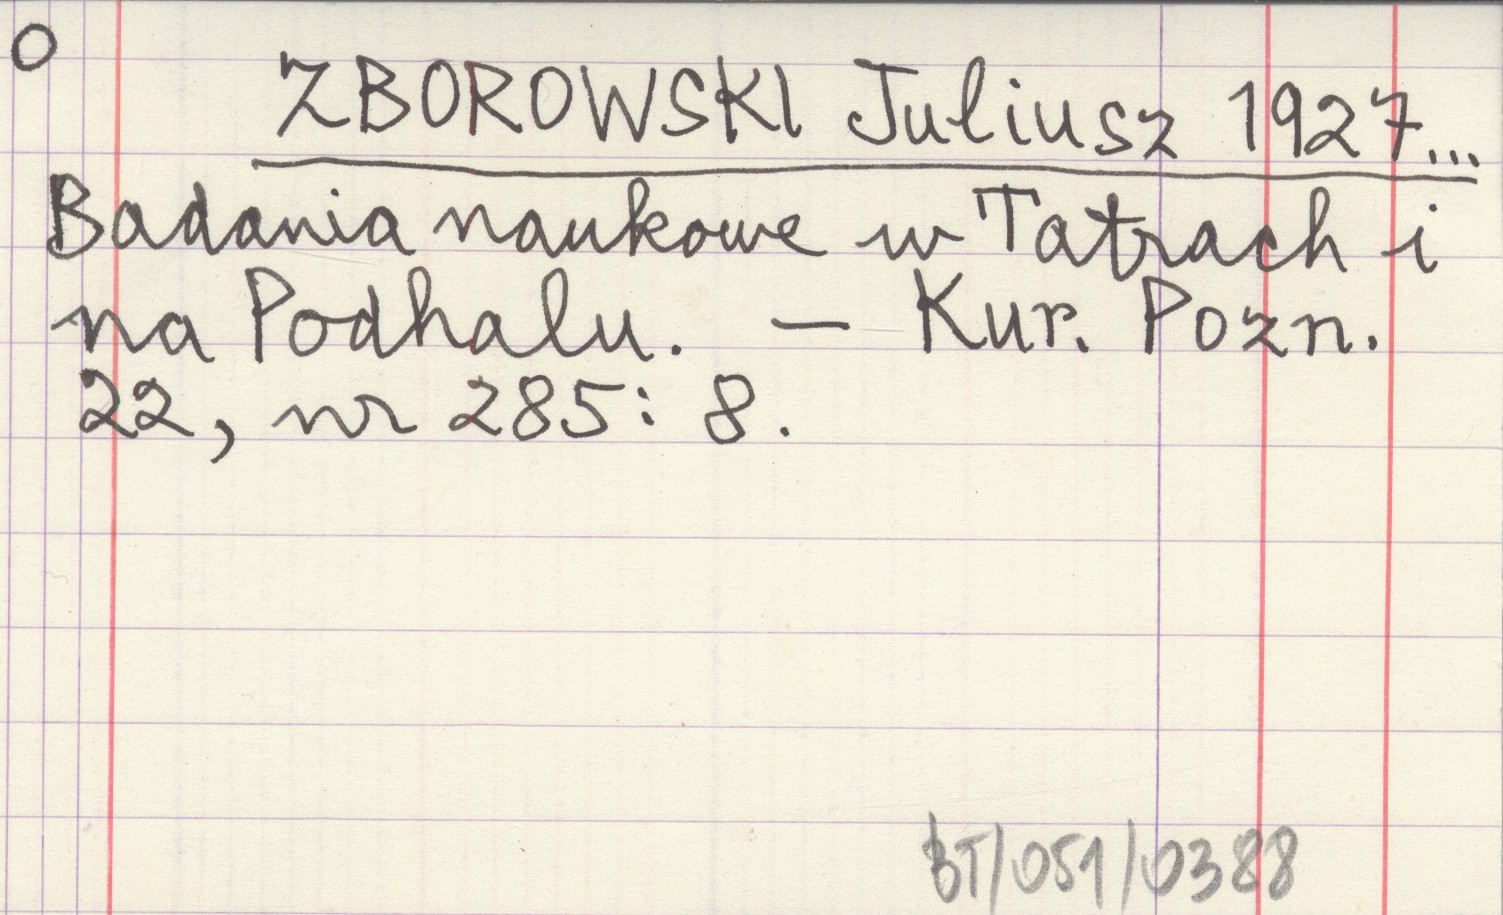 O
ZBOROWSKI Juliusz 1927...
Badania naukowe w Tatrach i
na Podhalu. — Kur. Pozn.
22, nr 285: 8.
BT/051/0388